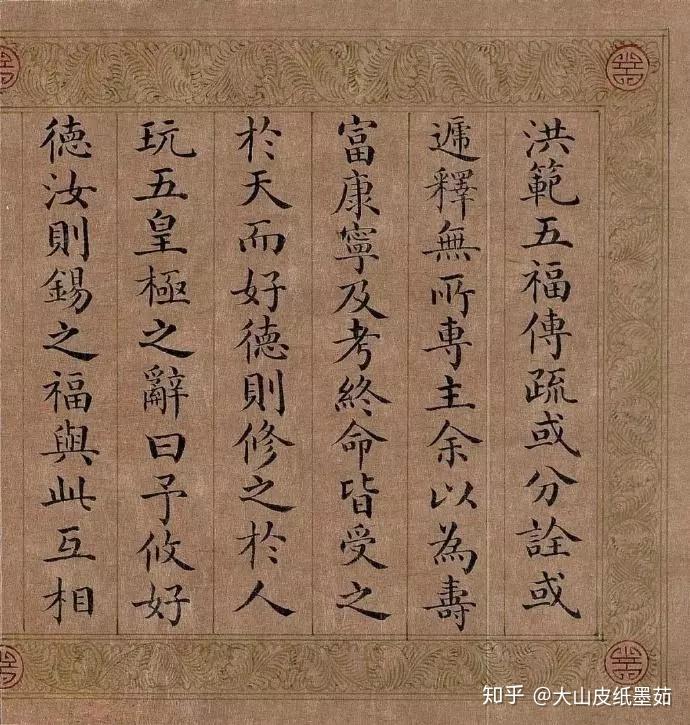 洪範五福傳疏或分詮或
遞釋無所専主余以為壽
富康寧及考終命皆受之
於天而好德則修之於人
玩五皇極之辭曰予攸好
德汝則錫之福與此互相
知乎 @大山皮纸墨茹